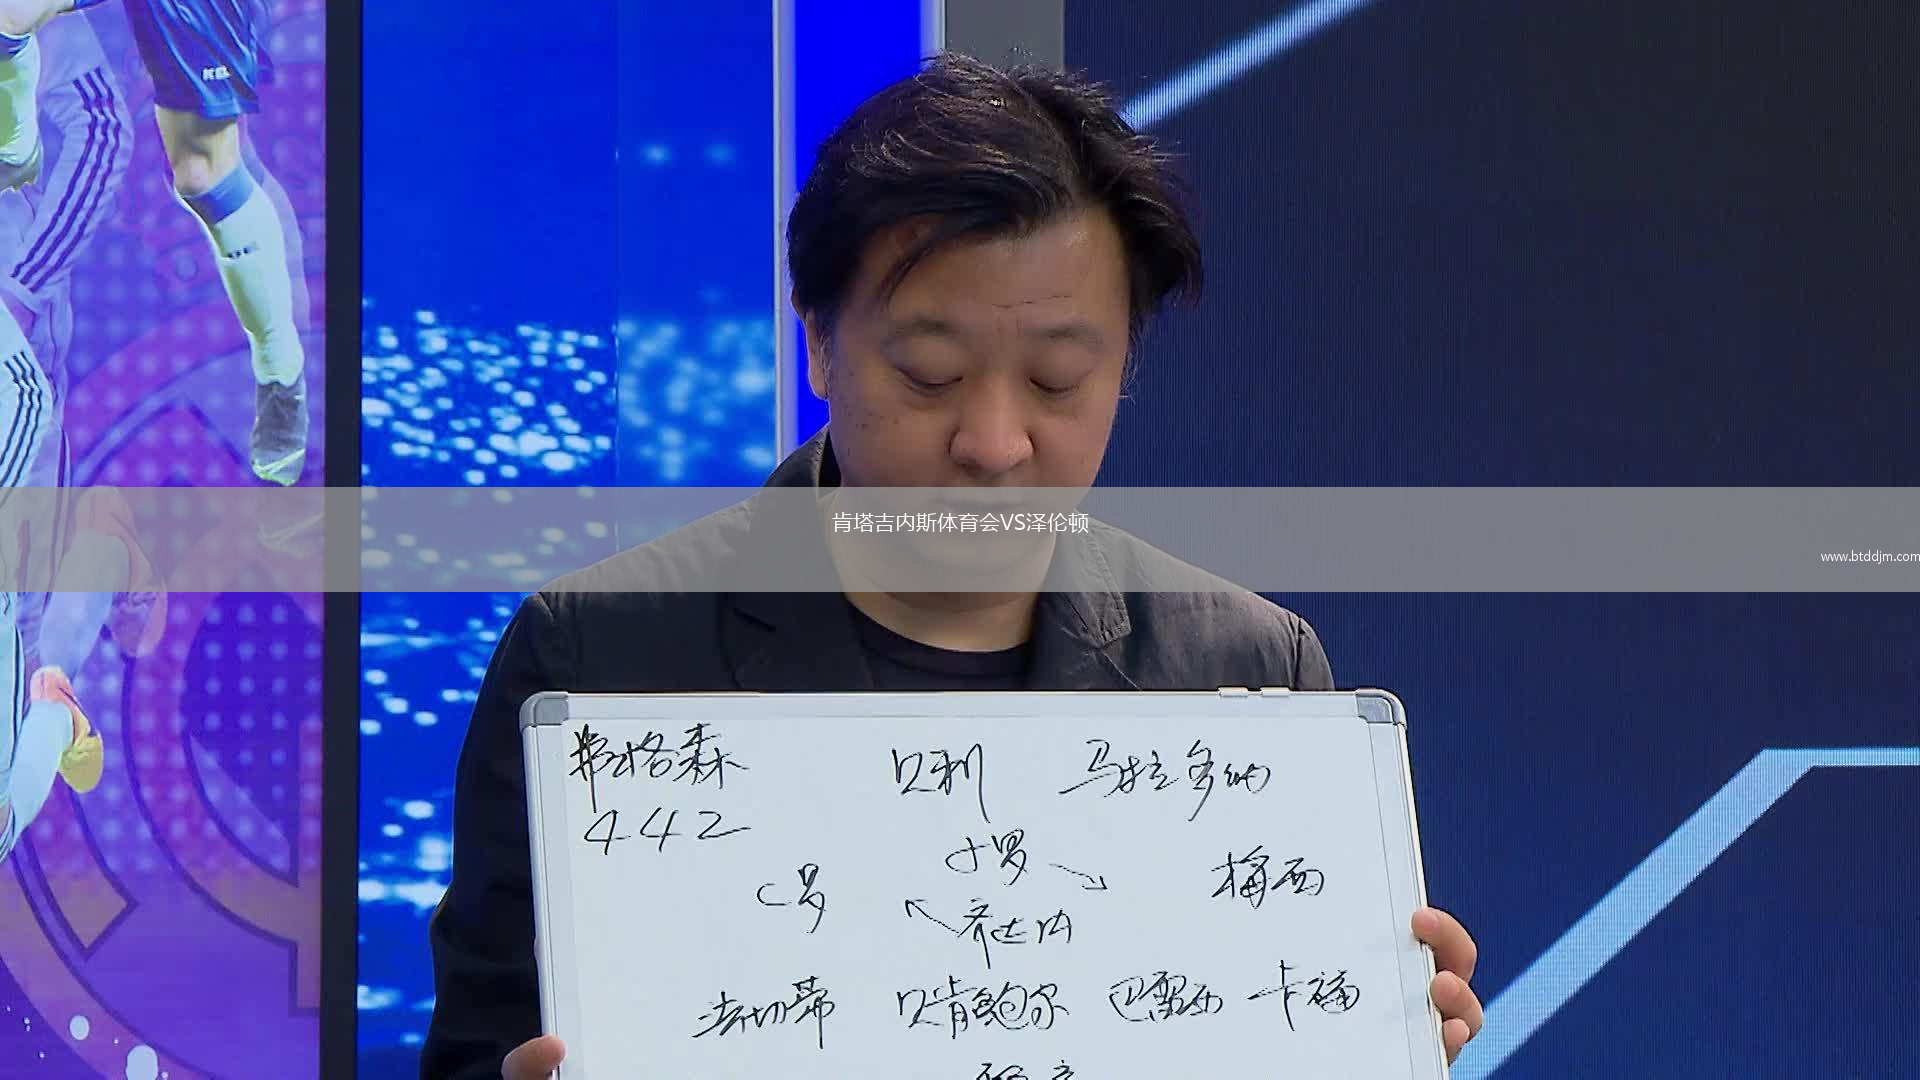 KELME
肯塔吉内斯体育会VS泽伦顿
www.btddjm.com
弗格森 贝利 马拉多纳
442
小罗
C罗 梅西
齐达内
法切蒂 贝肯鲍尔 巴雷西 卡福